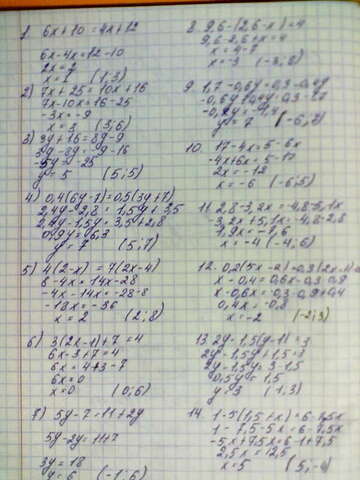 1 6x+10=4x+12
6x-4x=12-10
2x=2
x=1 (1;3)
2) 7x+25=10x+16
7x-10x=16-25
-3x=-9
x=3 (3;6)
3) 3y+16=8y-9
3y-8y=-9-16
-5y=-25
y=5 (5;5)
4) 0,4(6y-7)=0,5(3y+7)
2,4y-2,8=1,5y+3,5
2,4y-1,5y=3,5+2,8
0,9y=6,3
y=7 (5;7)
5) 4(2-x)=7(2x-4)
8-4x=14x-28
-4x-14x=-28-8
-18x=-36
x=2 (2;8)
6) 3(2x-1)+7=4
6x-3+7=4
6x=4+3-7
6x=0
x=0 (0;6)
5y-7=11+2y
5y-2y=11+7
3y=18
y=6 (-1;6)
8 9,6-(2,6-x)=4
9,6-2,6+x=4
x=4-7
x=-3
9 1,7-0,6y=0,3-0,4y
y=7
10 17-4x=5-6x
-4x+6x=5-17
2x=-12
x=-6 (-6;5)
11 2,8-3,2x=-4,8-5,1x
-3,2x+5,1x=-4,8-2,8
x=-4 (-4;6)
x-0,4=0,6x-0,3-0,9
0,4x=-0,8
x=-2 (-2;3)
13 2y-1,5(y-1)=3
2y-1,5y+1,5=3
2y-1,5y=3-1,5
0,5y=1,5
y=3 (1;3)
14 1-5(1,5+x)=6-7,5x
1-7,5-5x=6-7,5x
-5x+7,5x=6-1+7,5
2,5x=12,5
x=5